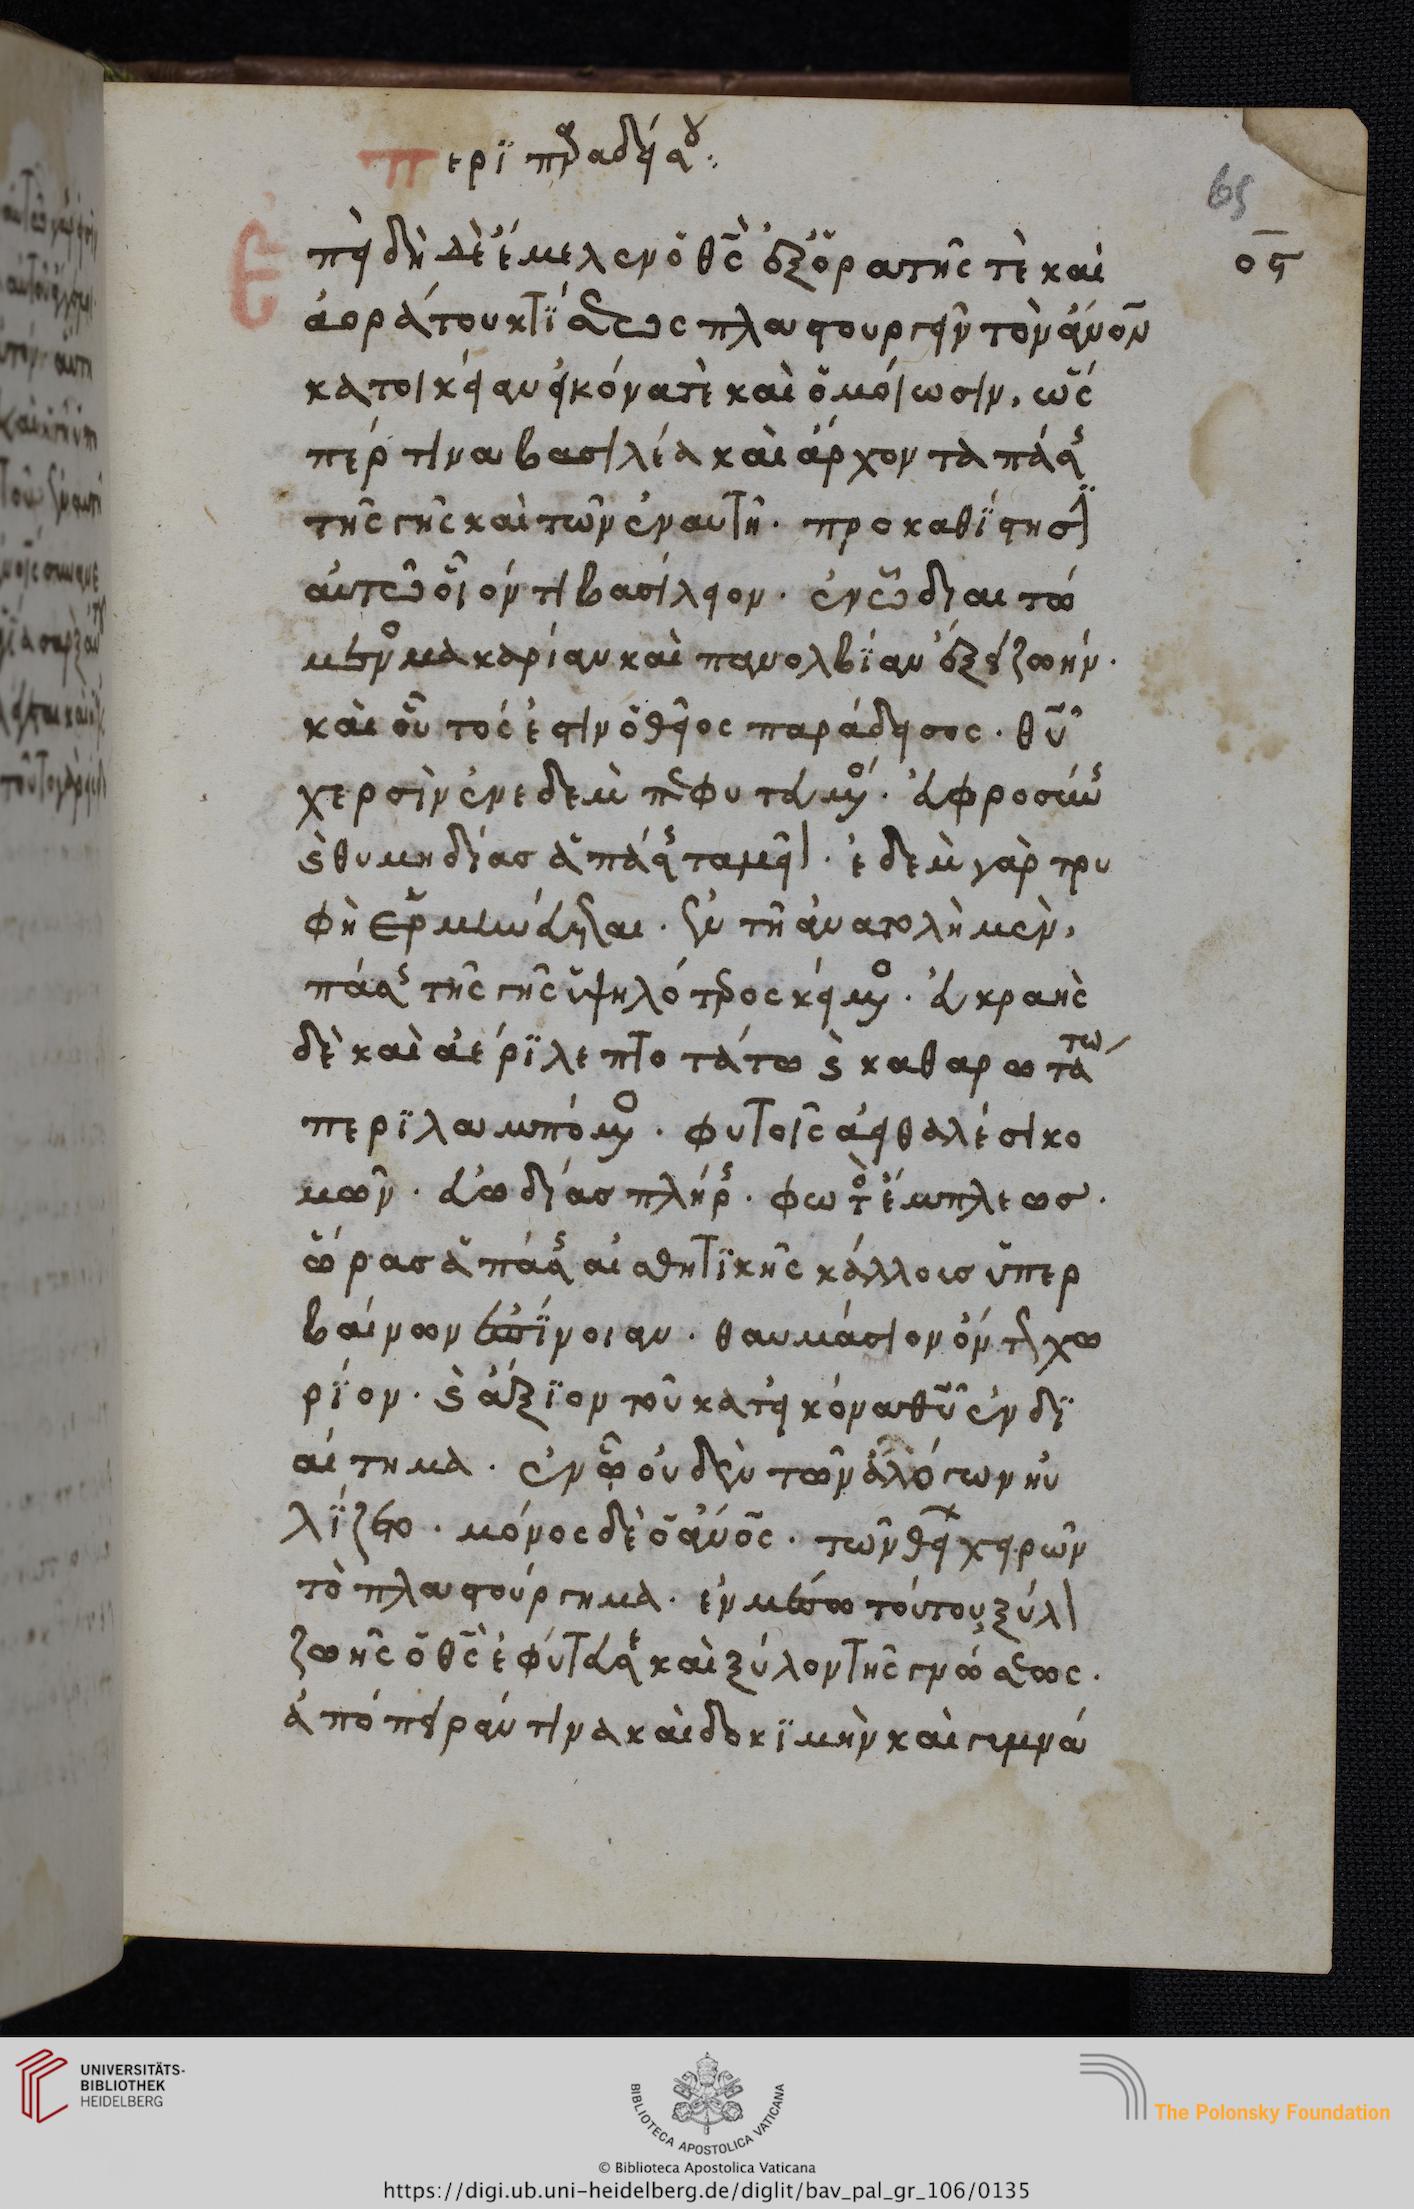 περϊ παραδείσου:
65
Ἐπειδὴ δὲ ἔμελεν ὁ θς ἐξ ὁρατῆς τὲ καὶ
ος
ἀοράτου κτίσεως πλαστουργεῖν τὸν ἄνον
κατοικείαν εἰκόνα τὲ καὶ ὁμοίωσιν, ὥς
πέρ τινα βασιλέα καὶ ἄρχοντα πάσης
τῆς γῆς καὶ τῶν ἐν αυτῆ. προκαθίστησι
αὐτῶ οἷόν τι βασίλειον. ἐν ὧ διαιτώ
μενος μακαρίαν καὶ πανολβίαν ἕξει ζωήν.
καὶ οὗτός ἐστιν ὁ θεῖος παράδεισος. θυ
χερσὶν ἐν εδεμ πεφυταμένος. εὐφροσύνης
καὶ θυμηδίας ἁπάσης ταμεῖον. ἐδεμ γὰρ τρυ
φὴ ἑρμηνεύεται. ἐν τῆ ἀνατολὴ μὲν,
πάσης τῆς γῆς ὑψηλότερος κείμενος. εὐκρανὴς
δὲ καὶ ἀέρϊ λεπτοτάτω καὶ καθαρωτάτω
περϊλαμπόμενος. φυτοῖς ἀειθαλέσι κο
μῶν. εὐωδίας πλήρης. φωτὸς ἔμπλεως.
ὥρας ἁπάσης αἰσθητϊκῆς κάλλους ὑπερ
βαίνων ἐπίνοιαν. θαυμάσιον ὄντως χω
ρϊον. καὶ ἄξϊον τοῦ κατ εἰκόνα θυ ἐνδϊ
αίτημα. ἐν ὧ οὐδὲν τῶν ἀλόγων ηὐ
λϊζετο. μόνος δὲ ὁ ἄνος. τῶν θείων χειρῶν
τὸ πλαστούργημα. ἐν μέσω τούτου ξύλον
ζωῆς ὁ θς ἐφύτευσε καὶ ξύλον τῆς γνώσεως.
ἀπόπειράν τινα καὶ δοκϊμὴν καὶ γυμνά
UNIVERSITÄTS-
BIBLIOTHEK
HEIDELBERG
BIBLIOTECA APOSTOLICA VATICANA
The Polonsky Foundation
© Biblioteca Apostolica Vaticana
https://digi.ub.uni-heidelberg.de/diglit/bav_pal_gr_106/0135